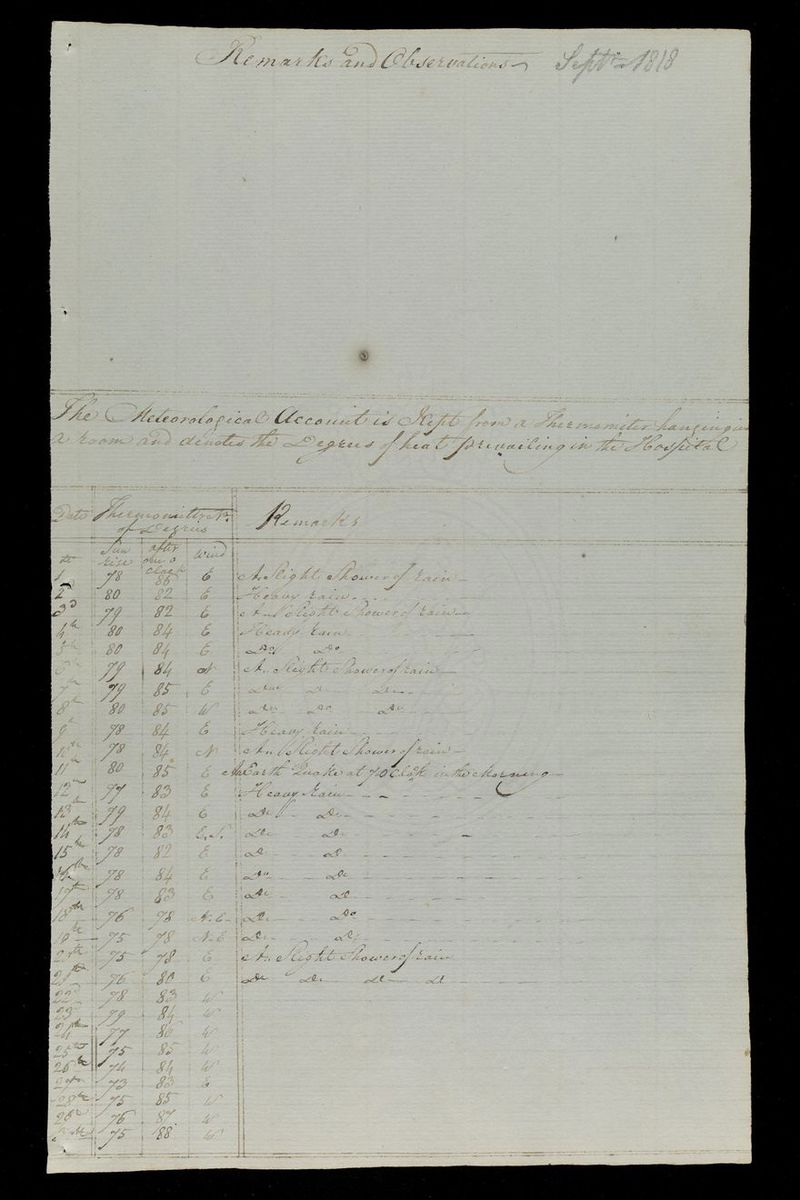 Remarks and Observations Septr 1818
The Meteorological Account is Kept from a Thermometer hanging in
a room and denotes the Degrees of heat prevailing in the Hospital
Date Thermometer Remarks
of Degrees
Sun rise after one o Clock Wind
1 78 86 E A Slight Shower of rain
2 80 82 E Heavy rain
3d 79 82 E A Slight Shower of rain
4th 80 84 E Heavy rain
5th 80 84 E Do Do
6th 79 84 N A Slight Shower of rain
7th 79 85 E Do Do Do
8th 80 85 W Do Do Do
9th 78 84 E Heavy rain
10th 78 84 N A Slight Shower of rain
11th 80 85 E An Earth Quake at 7 o Clok in the Morning
12th 77 83 E Heavy rain
13th 79 84 E Do Do
14th 78 83 E.S. Do Do
15th 78 82 E Do Do
16th 78 84 E Do Do
17th 78 83 E Do Do
18th 76 78 N.E Do Do
19th 75 78 N.E Do Do
20th 75 78 E A Slight Shower of rain
21st 76 80 E Do Do Do Do
22d 78 83 W
23 79 84 W
24th 77 86 W
25th 75 85 W
26th 74 84 W
27th 73 83 E
28th 75 85 W
29th 76 87 W
75 88 W